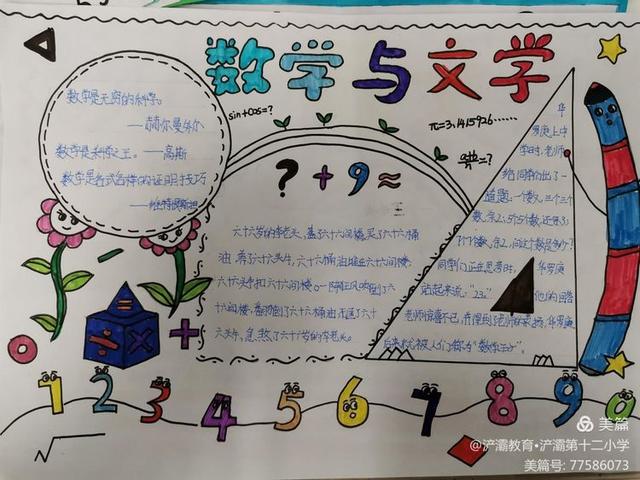 数学与文学
数学是无穷的科学。
——赫尔曼外尔
数学是科学之王。——高斯
数学是各式各样的证明技巧
——维特根斯坦
sin+cos=?
π=3.1415926……
=?
?+9≈
六十六岁的李老头，盖了六十六间楼，买了六十六桶
油，养了六十六头牛，六十六桶油堆在六十六间楼，
六十六头牛扣六十六间楼。一阵狂风吹倒了六
十六间楼，翻倒了六十六桶油，压逗了六十
六头牛，急煞了六十六岁的李老头。
华
罗庚上中
学时，老师
给同学们出了一
道题：一个数，三个三个
数，余2，5个5个数，还余3，
7个7个数，余2，问这个数是多少？
同学们正在思考时，华罗庚
站起来说："23。"他的回答
老师惊喜不已，并得到老师的表扬，华罗庚
后来也被人们称为"数学王子"。
÷ × +
1 2 3 4 5 6 7 8 9 0
√
美篇
@浐灞教育•浐灞第十二小学
美篇号: 77586073